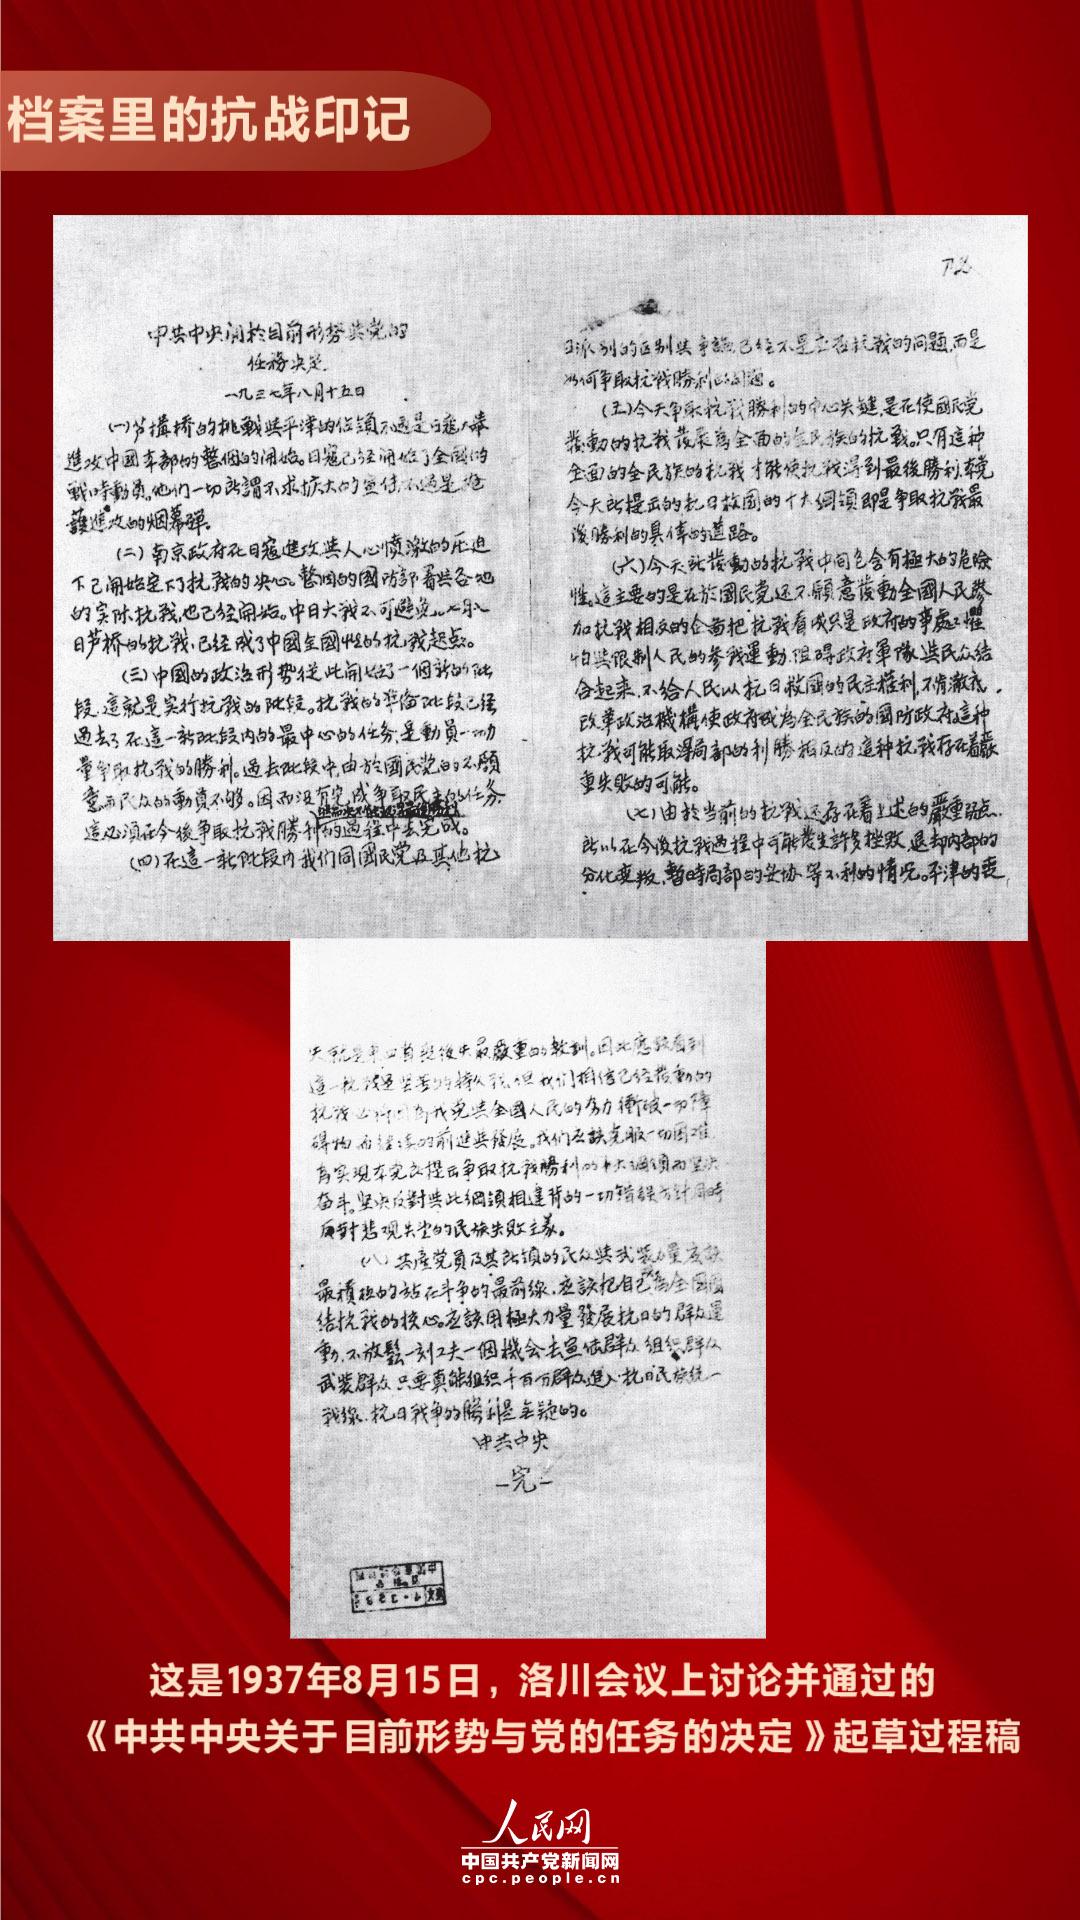 档案里的抗战印记
中共中央关於目前形势与党的
任务决定
一九三七年八月十五日
(一)芦沟桥的挑战与平津的佔领不过是日寇大举
進攻中國本部的整個的開始。日寇已经開始了全國的
戰時動員。他们一切所謂不求扩大的宣传不过是掩
護進攻的烟幕弹。
(二)南京政府在日寇進攻与人心憤激的压迫
下已開始定下了抗战的决心。整個的國防部署与各地
的实际抗战,也已经開始。中日大战不可避免。七月八
日芦桥的抗战,已经成了中國全國性的抗战起点。
(三)中國的政治形势從此開始了一個新的阶
段,這就是实行抗战的阶段。抗战的準备阶段已经
过去了。在這一新阶段内的最中心的任务,是動員一切力
量争取抗战的勝利。过去阶段中,由於國民党的不願
意与民众的動員不够。因而没有完成争取民主的任务,
這必須在今後争取抗战勝利的过程中去完成。
(四)在這一新阶段内我们同國民党及其他抗
日派别的区别与争論,已经不是应否抗战的问题,而是
如何争取抗战勝利的问题。
(五)今天争取抗战勝利的中心关键,是在使國民党
發動的抗战發展為全面的全民族的抗战。只有這种
全面的全民族的抗战才能使抗战得到最後勝利。本党
今天所提出的抗日救國的十大綱領,即是争取抗战最
後勝利的具体的道路。
(六)今天所發動的抗战中间包含有極大的危險
性,這主要的是在於國民党还不願意發動全國人民参
加抗战。相反的企图把抗战看成只是政府的事,處處懼
怕与限制人民的参战運動,阻碍政府軍隊与民众结
合起来,不给人民以抗日救國的民主權利,不肯澈底
改革政治機構使政府成為全民族的國防政府。這种
抗战可能取得局部的利勝,相反的這种抗战存在着嚴
重失败的可能。
(七)由於当前的抗战还存在着上述的嚴重弱点,
所以在今後抗战过程中可能發生許多挫败,退却,内部的
分化叛变,暫時局部的妥协等不利的情况。平津的喪
失就是東四省後失最嚴重的教訓。因此應該看到
這一抗战是坚苦的持久战。但我们相信已经發動的
抗战必将因為我党与全國人民的努力衝破一切障
碍物而继续的前進与發展。我们应該克服一切困难
為实现本党所提出争取抗战勝利的十大綱領而坚决
奋斗。坚决反對与此綱領相違背的一切错误方针同時
反對悲观失望的民族失败主義。
(八)共產党员及其所領的民众与武装力量应該
最積極的站在斗争的最前線,应該把自己為全國团
结抗战的核心。应該用極大力量發展抗日的群众運
動。不放鬆一刻工夫一個機会去宣传群众,组织群众
武装群众。只要真能组织千百万群众進入抗日民族统一
战線,抗日戰争的勝利是無疑的。
中共中央
—完—
这是1937年8月15日，洛川会议上讨论并通过的
《中共中央关于目前形势与党的任务的决定》起草过程稿
人民网
中国共产党新闻网
cpc.people.cn